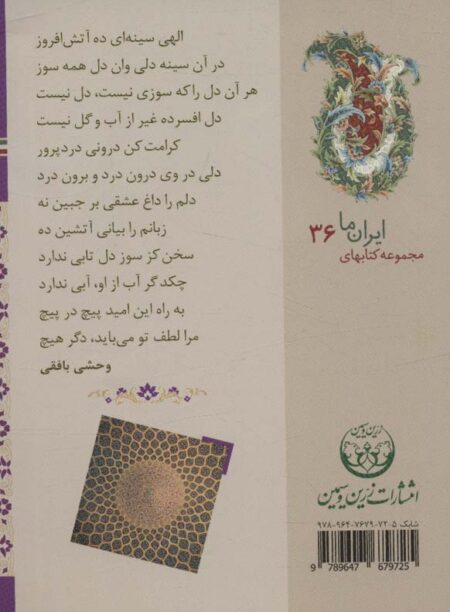 الهی سینه‌ای ده آتش‌افروز
در آن سینه دلی وان دل همه سوز
هر آن دل را که سوزی نیست، دل نیست
دل افسرده غیر از آب و گل نیست
کرامت کن درونی درد پرور
دلی در وی درون درد و برون درد
دلم را داغ عشقی بر جبین نه
زبانم را بیانی آتشین ده
سخن کز سوز دل تابی ندارد
چکد گر آب از او، آبی ندارد
به راه این امید پیچ در پیچ
مرا لطف تو می‌باید، دگر هیچ
وحشی بافقی
ایران ما ۳۶
مجموعه کتابهای
زرین و سیمین
انتشارات زرین و سیمین
شابک ۵-۷۲-۷۶۷۹-۹۶۴-۹۷۸
9 789647 679725